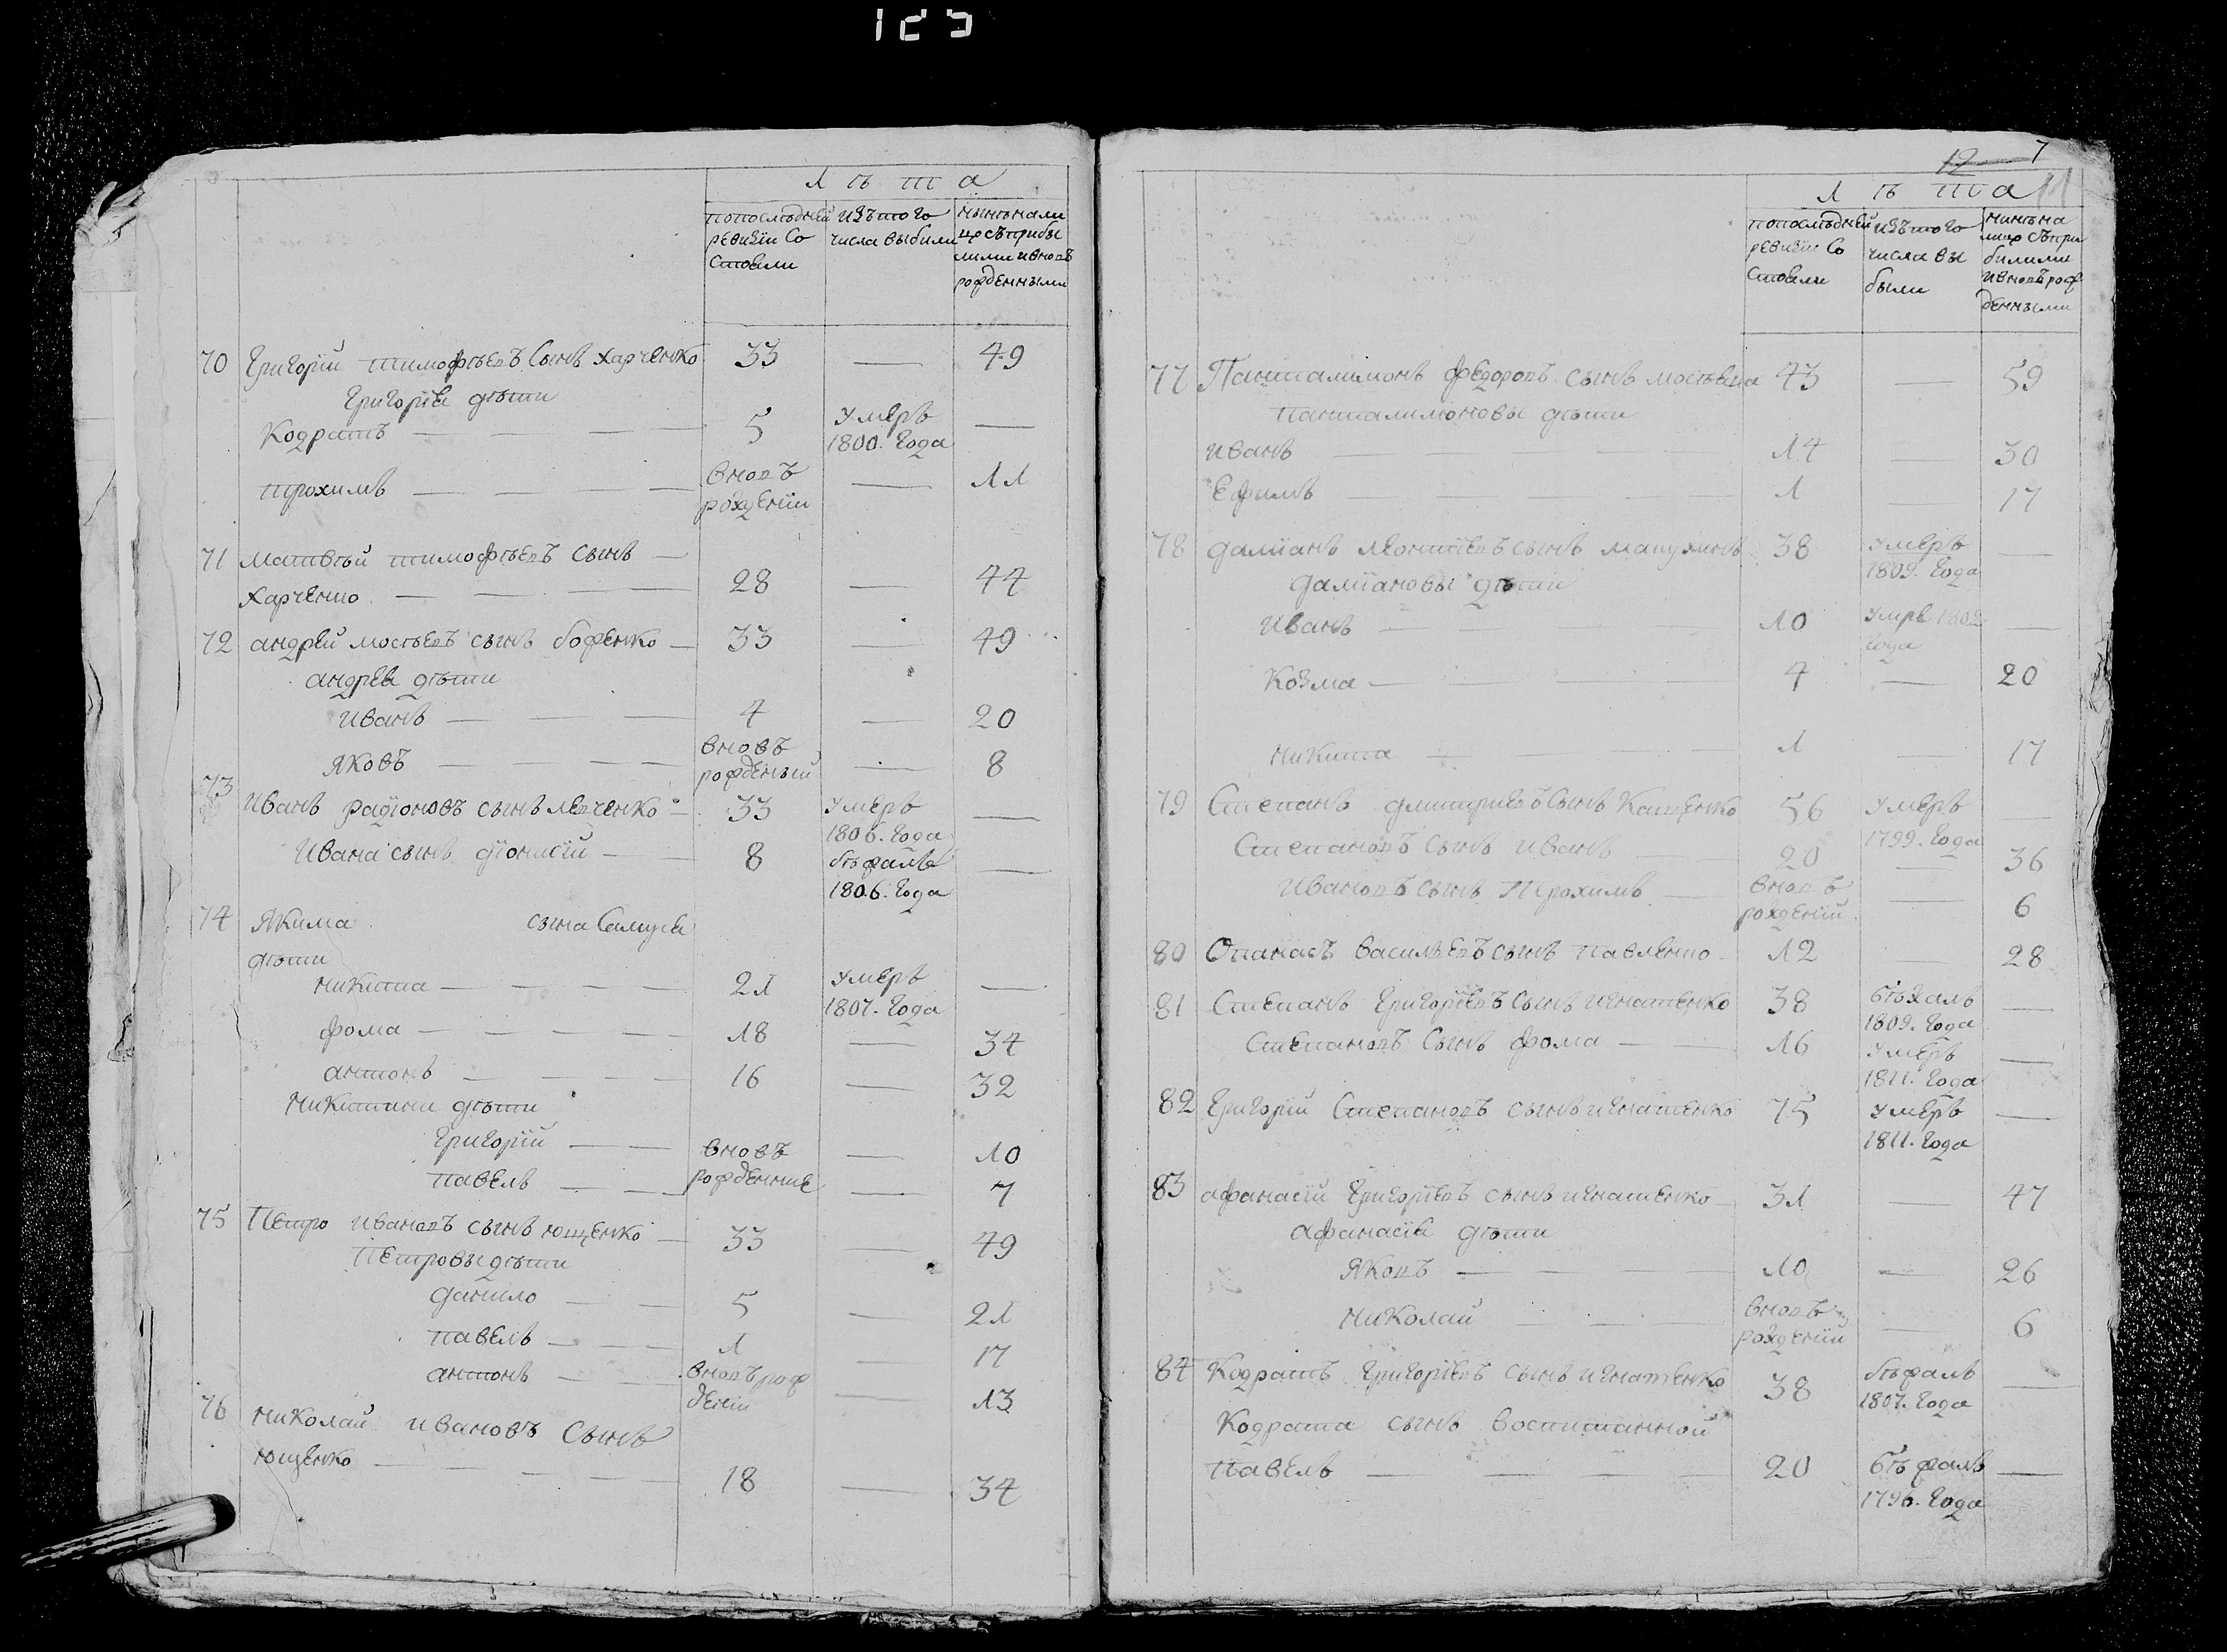 125
Л ѣ т а
попослѣдней
ревизіи Со
Стояли
изътого
числа выбыли
нынѣнали
цо съприбы
лыми ивновъ
рожденными
70 Григорій тимофѣевъ Сынъ харченко 33 — 49
Григорїя дѣти
Кодратъ — 5 Умеръ 1800. Года —
трохимъ — вновъ рождении — 11
71 матвѣй тимофѣевъ сынъ —
харченко — 28 — 44
72 андрей мосѣевъ сынъ боженко — 33 — 49
андрея дѣти
иванъ — 4 — 20
яковъ — вновъ рожденый — 8
73 иванъ радїоновъ сынъ левченко — 33 Умеръ 1806. Года —
Ивана сынъ дїонисїй — 8 бѣжалъ 1806. Года —
74 Якима сына
дѣти
никита — 21 Умеръ 1807. Года —
фома — 18 — 34
антонъ — 16 — 32
никитини дѣти
Григорїй — вновъ — 10
павелъ — рожденние — 7
75 Петро ивановъ сынъ ющенко — 33 — 49
Петровы дѣти
данило — 5 — 21
павелъ — 1 — 17
антонъ — вновъ рож деніи — 13
76 николай ивановъ Сынъ
ющенко — 18 — 34
12 7
11
Л ѣ т а
попослѣдней
ревизіи Со
Стояли
изътого
числа вы
были
нинѣна
лицо съпри
былыми
ивновърож
денными
77 Панталимонъ федоровъ сынъ 43 — 59
панталимоновы дѣти
иванъ — 14 — 30
Ефимъ — 1 — 17
78 далианъ леонтїевъ сынъ 38 Умеръ 1809. Года —
далїановы дѣти
иванъ — 10 Умре 1802 Года —
Козма — 4 — 20
никита — 1 — 17
79 Степанъ дмитриевъ Сынъ Кащенко 56 Умеръ 1799. Года —
Степановъ Сынъ иванъ — 20 — 36
ивановъ сынъ Трохимъ — вновъ рожденїи — 6
80 Опанасъ васильевъ сынъ павленко — 12 — 28
81 Степанъ Григорїевъ Сынъ игнатенко 38 бѣжалъ 1809. Года —
Степановъ Сынъ фома — 16 Умеръ 1811. Года —
82 Григорїи Степановъ сынъ игнатенко 75 Умеръ 1811. Года —
83 афанасїи Григорїевъ сынъ игнатенко — 31 — 47
афанасїя дѣти
яковъ — 10 — 26
николай — вновъ рожденїи — 6
84 Кодратъ Григорїевъ сынъ игнатенко 38 бѣжалъ 1807. Года —
Кодрата сынъ воспитанной
павелъ — 20 бѣжалъ 1796. Года —